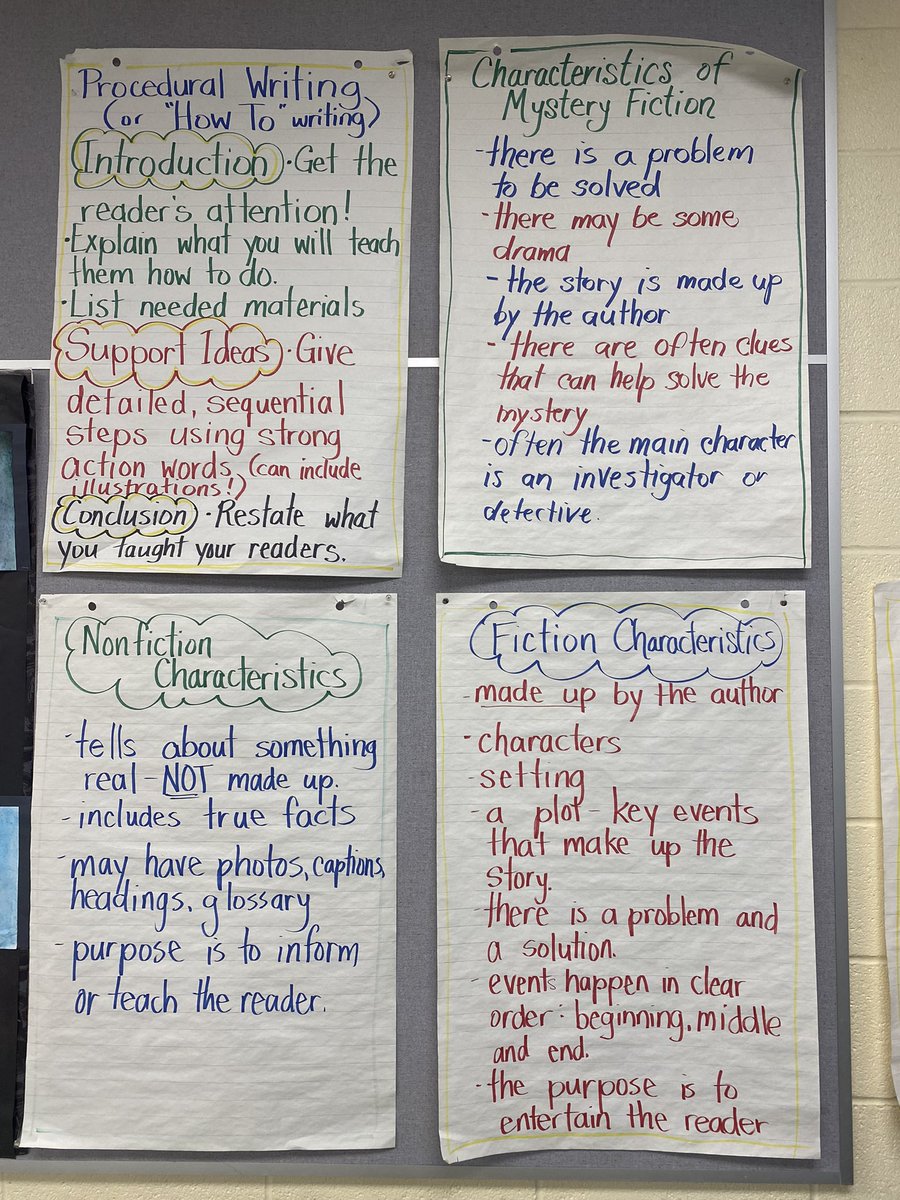 Procedural Writing
(or "How To" writing)
Introduction · Get the
reader's attention!
· Explain what you will teach
them how to do.
· List needed materials
Support Ideas · Give
detailed, sequential
steps using strong
action words (can include
illustrations!)
Conclusion · Restate what
you taught your readers.
Characteristics of
Mystery Fiction
- there is a problem
to be solved
- there may be some
drama
- the story is made up
by the author
- there are often clues
that can help solve the
mystery
- often the main character
is an investigator or
detective.
Nonfiction
Characteristics
- tells about something
real - NOT made up.
- includes true facts
- may have photos, captions,
headings, glossary
- purpose is to inform
or teach the reader.
Fiction Characteristics
- made up by the author
- characters
- setting
- a plot - key events
that make up the
story.
- there is a problem and
a solution.
- events happen in clear
order: beginning, middle
and end.
- the purpose is to
entertain the reader